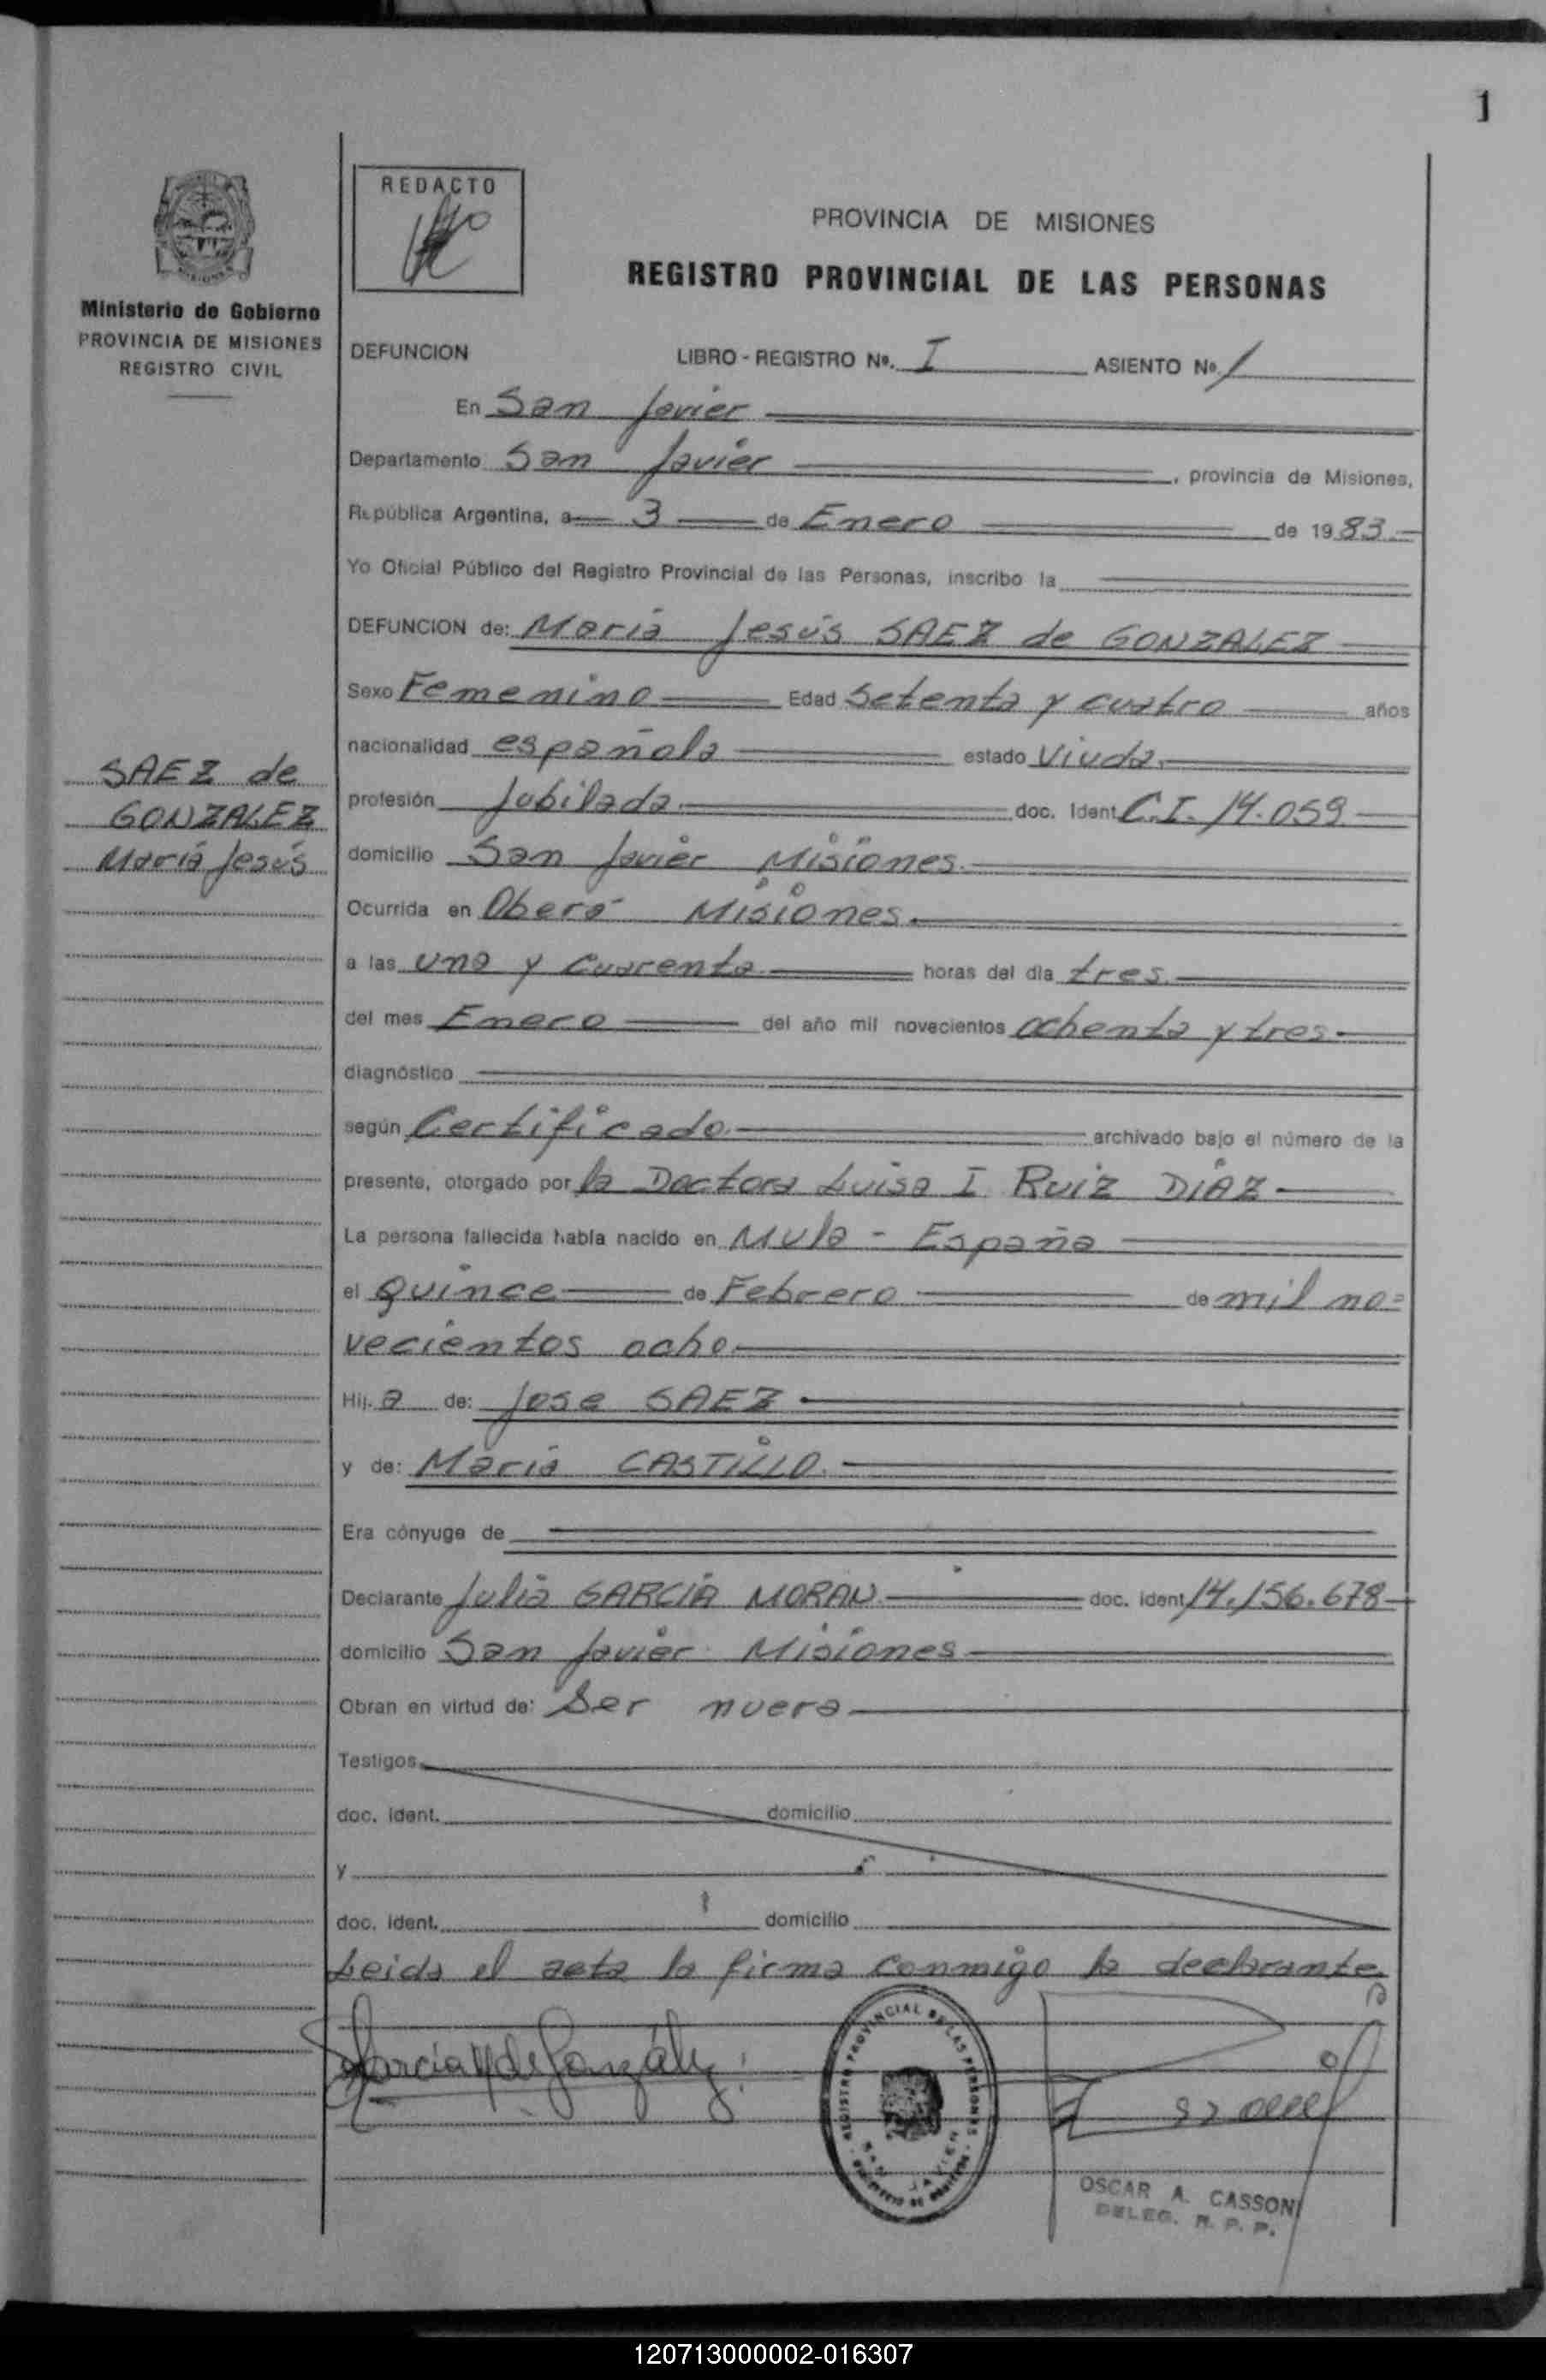 1
REDACTO
PROVINCIA DE MISIONES
REGISTRO PROVINCIAL DE LAS PERSONAS
Ministerio de Gobierno
PROVINCIA DE MISIONES
REGISTRO CIVIL
DEFUNCION LIBRO - REGISTRO Nº. I ASIENTO Nº 1
En San Javier
Departamento San Javier, provincia de Misiones,
República Argentina, a 3 de Enero de 1983.
Yo Oficial Público del Registro Provincial de las Personas, inscribo la
DEFUNCION de: Maria Jesús SAEZ de GONZALEZ
Sexo Femenino Edad Setenta y cuatro años
nacionalidad española estado Viuda.
SAEZ de
GONZALEZ
María Jesús
profesión Jubilada. doc. Ident C.I. 14.059
domicilio San Javier Misiones.
Ocurrida en Oberá Misiones.
a las una y cuarenta horas del día tres.
del mes Enero del año mil novecientos ochenta y tres.
diagnóstico
según Certificado. archivado bajo el número de la
presente, otorgado por la Doctora Luisa I Ruiz DIAZ
La persona fallecida había nacido en Mula - España
el Quince de Febrero de mil no=
vecientos ocho.
Hij. a de: Jose SAEZ
y de: Maria CASTILLO.
Era cónyuge de
Declarante Julia GARCIA MORAN. doc. ident 14.156.678
domicilio San Javier Misiones
Obran en virtud de: Ser nuera
Testigos
doc. ident. domicilio
y
doc. ident. domicilio
Leida el acta la firma conmigo la declarante
REGISTRO PROVINCIAL DE LAS PERSONAS
SAN JAVIER
OSCAR A. CASSONI
DELEG. R. P. P.
120713000002-016307